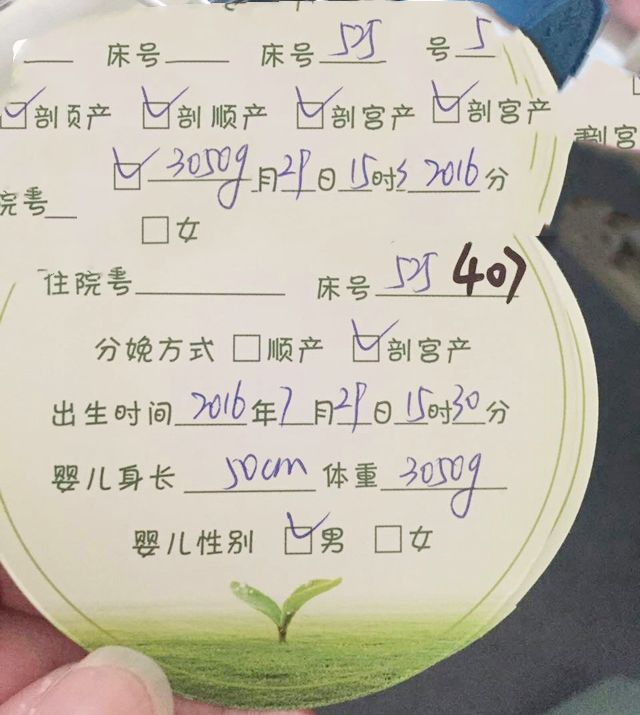 床号 床号 525 号 5
☑剖页产 ☑剖 顺产 ☑剖宫产 ☑剖宫产
剖宫
☑ 3050g 月 29 日 15 时 2016 分
院号
□女
住院号 床号 525 (407)
分娩方式 □顺产 ☑剖宫产
出生时间 2016 年 7 月 29 日 15 时 30 分
婴儿身长 50cm 体重 3050g
婴儿性别 ☑男 □女